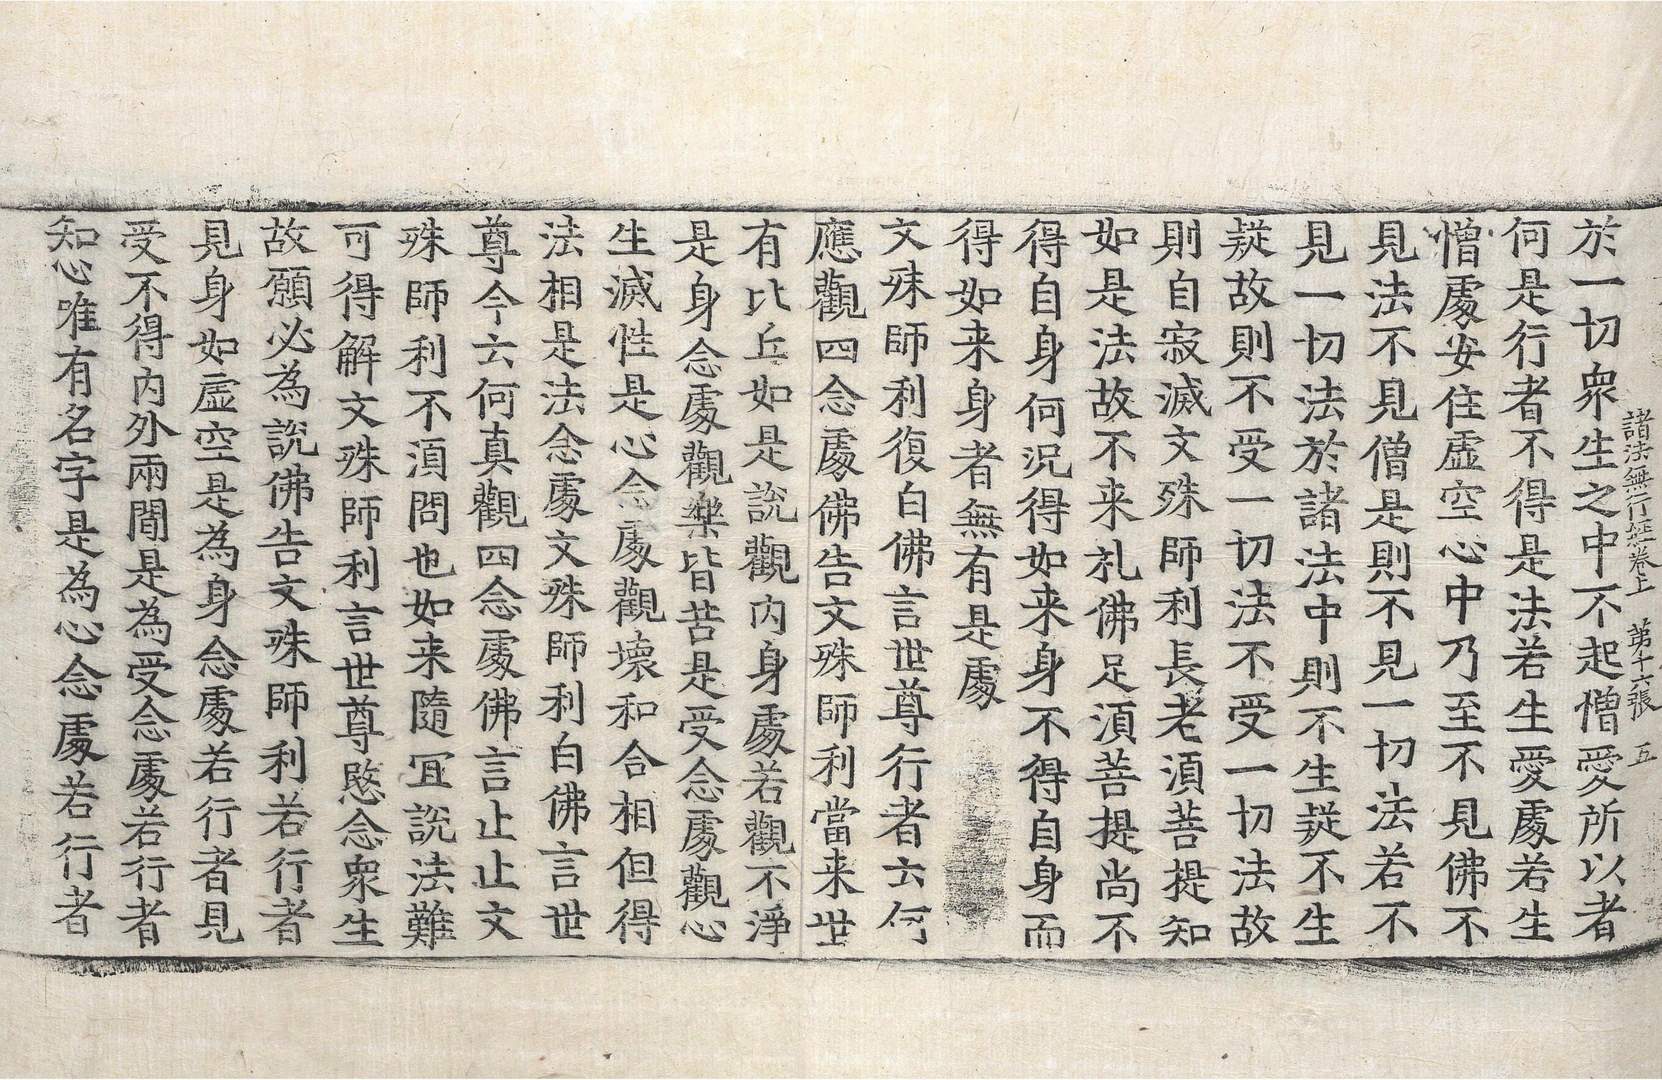 諸法無行經卷上　第十六張　五
於一切衆生之中不起憎愛所以者
何是行者不得是法若生愛處若生
憎處安住虛空心中乃至不見佛不
見法不見僧是則不見一切法若不
見一切法於諸法中則不生疑不生
疑故則不受一切法不受一切法故
則自寂滅文殊師利長老須菩提知
如是法故不来礼佛足須菩提尚不
得自身何況得如来身不得自身而
得如来身者無有是處
文殊師利復白佛言世尊行者云何
應觀四念處佛告文殊師利當来世
有比丘如是說觀内身處若觀不淨
是身念處觀樂皆苦是受念處觀心
生滅性是心念處觀壞和合相但得
法相是法念處文殊師利白佛言世
尊今云何真觀四念處佛言止止文
殊師利不須問也如来隨冝說法難
可得解文殊師利言世尊愍念衆生
故願必為說佛告文殊師利若行者
見身如虛空是為身念處若行者見
受不得内外兩間是為受念處若行者
知心唯有名字是為心念處若行者